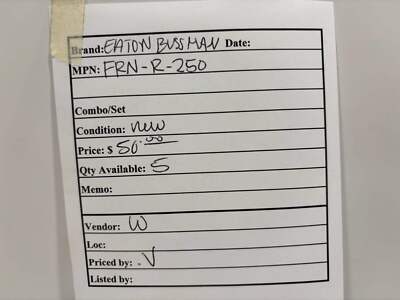 Brand: EATON BUSSMAN Date:
MPN: FRN-R-250
Combo/Set
Condition: new
Price: $ 50.00
Qty Available: 5
Memo:
Vendor: W
Loc:
Priced by: .V
Listed by: